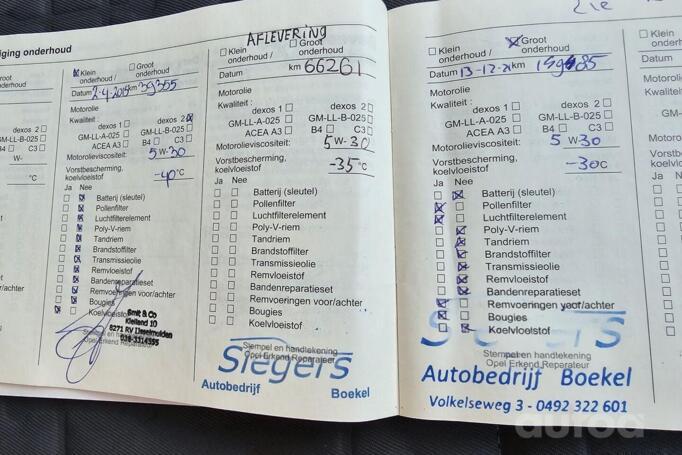 iging onderhoud
root
erhoud
dexos 2
GM-LL-B-025
B4 C3
W-
°C
Klein onderhoud / Groot onderhoud
Datum 2-4-2019 km 39355
Motorolie
Kwaliteit :
dexos 1 dexos 2
GM-LL-A-025 GM-LL-B-025
ACEA A3 B4 C3
Motorolieviscositeit:
5 W-30
Vorstbescherming,
koelvloeistof -40 °C
Ja Nee
Batterij (sleutel)
Pollenfilter
Luchtfilterelement
Poly-V-riem
Tandriem
Brandstoffilter
Transmissieolie
Remvloeistof
Bandenreparatieset
Remvoeringen voor/achter
Bougies
Koelvloeistof
Smit & Co
Kleilend 10
8271 RV IJsselmuiden
038-3314355
Stempel en handtekening
Opel Erkend Reparateur
AFLEVERING
Klein onderhoud / Groot onderhoud
Datum km 66261
Motorolie
Kwaliteit :
dexos 1 dexos 2
GM-LL-A-025 GM-LL-B-025
ACEA A3 B4 C3
Motorolieviscositeit:
5 W-30
Vorstbescherming,
koelvloeistof -35 °C
Ja Nee
Batterij (sleutel)
Pollenfilter
Luchtfilterelement
Poly-V-riem
Tandriem
Brandstoffilter
Transmissieolie
Remvloeistof
Bandenreparatieset
Remvoeringen voor/achter
Bougies
Koelvloeistof
Stempel en handtekening
Opel Erkend Reparateur
Siegers
Autobedrijf Boekel
Zie
Klein onderhoud / Groot onderhoud
Datum 13-12-21 km
Motorolie
Kwaliteit :
dexos 1 dexos 2
GM-LL-A-025 GM-LL-B-025
ACEA A3 B4 C3
Motorolieviscositeit:
5 W30
Vorstbescherming,
koelvloeistof -30 C
Ja Nee
Batterij (sleutel)
Pollenfilter
Luchtfilterelement
Poly-V-riem
Tandriem
Brandstoffilter
Transmissieolie
Remvloeistof
Bandenreparatieset
Remvoeringen voor/achter
Bougies
Koelvloeistof
Stempel en handtekening
Opel Erkend Reparateur
Siegers
Autobedrijf Boekel
Volkelseweg 3 - 0492 322 601
Klein
onderho
Datum
Motorolie
Kwaliteit :
GM-LL
A
Motorolie
Vorstbesc
koelvloeis
Ja Nee
auroa